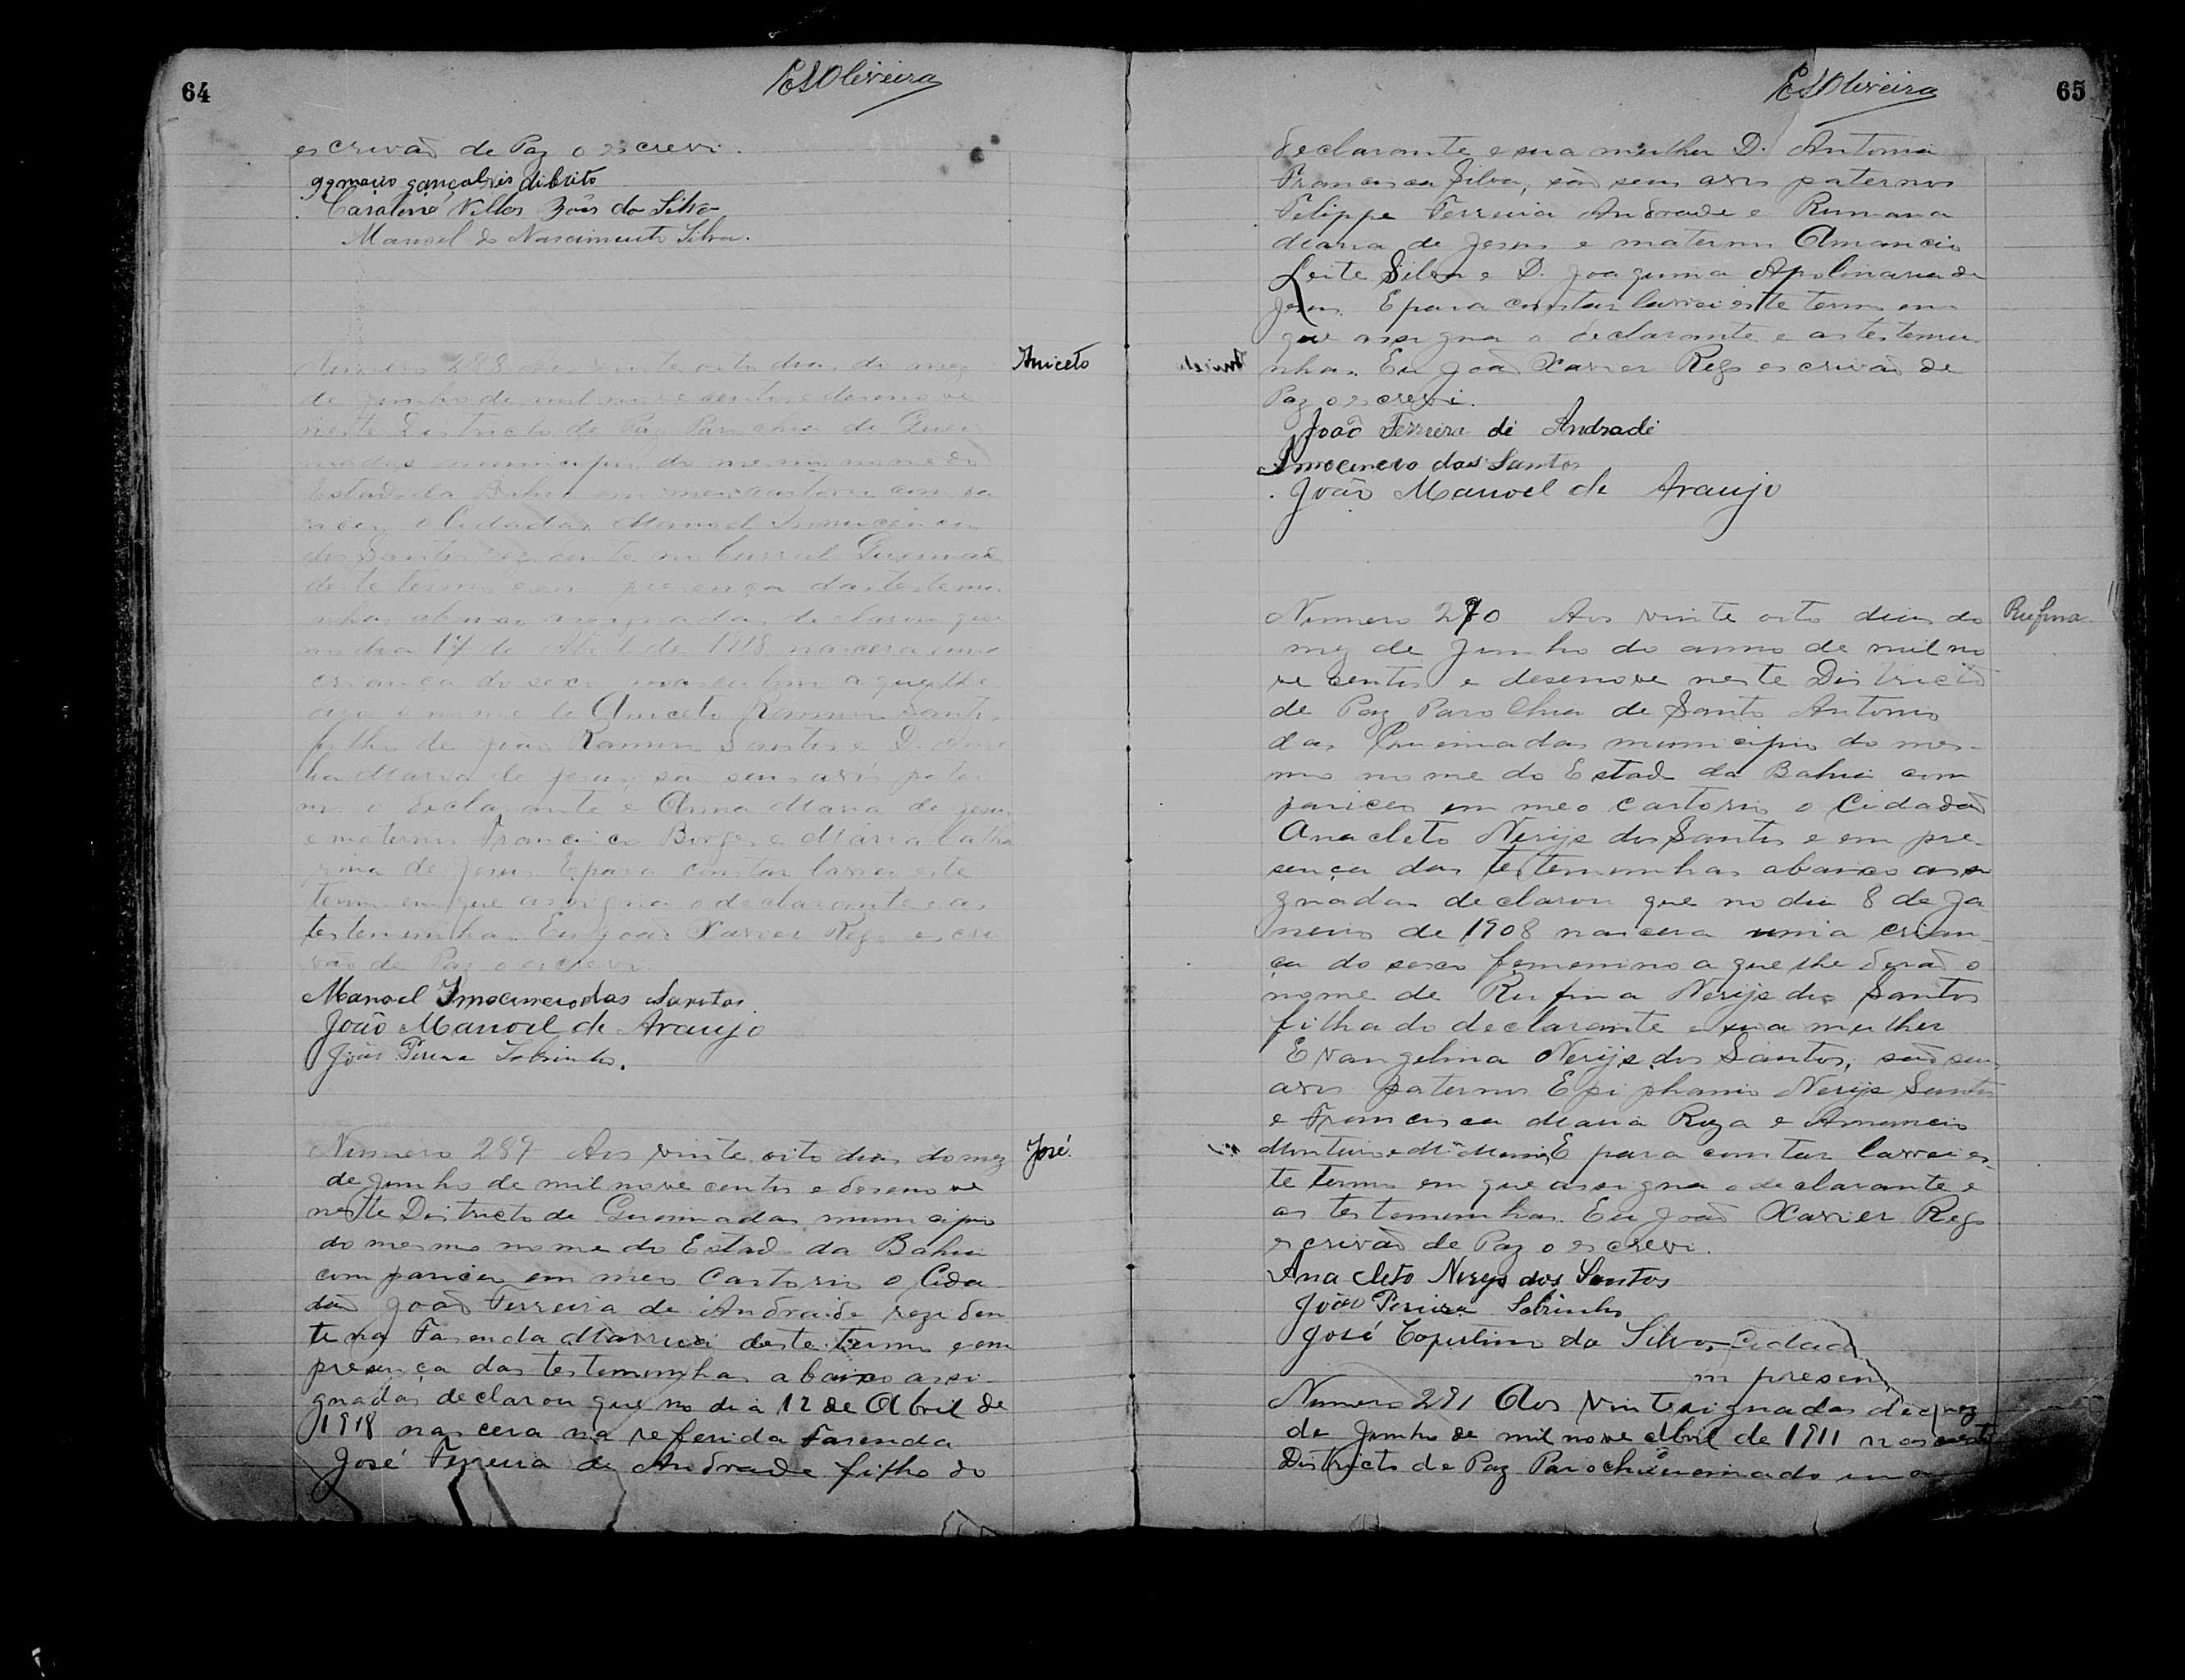 64
ESOliveira
escrivaõ de Paz o escrevi.
gonçalves di brito
Villas Bôas da Silva
Manoel do Nascimento Silva.
Numero 288 Aos vinte oito dias do mez
de Junho de mil nove centos e desenove
neste Districto de Paz Parochia de Quei
madas municipio do mesmo nome do
Estado da Bahia em meu cartorio compa
receu o Cidadaõ Manoel Innocencio
dos Santos rezidente no Curral Queimado
deste termo e em presença das testemu
nhas abaixo assignadas declarou que
no dia 17 de Abril de 1918 nascera uma
criança do sexo masculino a que lhe
o nome de Aniceto Ramos Santos
filho de João Ramos Santos e D.
Maria de Jesus, são seus avós pater
nos o declarante e Anna Maria de Jesus
e maternos Francisco Borges e Maria Catha
rina de Jesus. E para constar lavrei este
termo em que assigna o declarante e as
testemunhas. Eu Joaõ Xavier Rego escri
vaõ de Paz o escrevi.
Manoel Innocencio dos Santos
João Manoel de Araujo
João Pereira Sobrinho.
Aniceto
Numero 289 Aos vinte oito dias do mez
de Junho de mil nove centos e desenove
neste Districto de Queimadas municipio
do mesmo nome do Estado da Bahia
compareceu em meu Cartorio o Cida
daõ Joaõ Ferreira de Andrade reziden
te na Fazenda deste termo e em
presença das testemunhas abaixo assi-
gnadas declarou que no dia 12 de Abril de
1918 nascera na referida Fazenda
José Ferreira de Andrade filho do
José.
65
ESOliveira
declarante e sua mulher D. Antonia
Francisca Silva, saõ seus avos paternos
Felippe Ferreira Andrade e Rumana
Maria de Jesus e maternos Amancio
Leite Silva e D. Joaquina Apolinaria de
Jesus. E para constar lavrei este termo em
que assigna o declarante e as testemu
nhas. Eu Joaõ Xavier Rego escrivaõ de
Paz o escrevi.
Joaõ Ferreira di Andradi
Innocencio dos Santos
João Manoel de Araujo
Numero 290 Aos vinte oito dias do
mez de Junho do anno de mil no
ve centos e desenove neste Districto
de Paz Parochia de Santo Antonio
das Queimadas municipio do mes-
mo nome do Estado da Bahia com
pareceu em meo cartorio o Cidadaõ
Anacleto Nerys dos Santos e em pre-
sença das testemunhas abaixo assi
gnadas declarou que no dia 8 de Ja
neiro de 1908 nascera uma crian-
ça do sexo femenino a que lhe deraõ o
nome de Rufina Nerys dos Santos
filha do declarante e sua mulher
Evangelina Nerys dos Santos, saõ seus
avos paternos Epiphanio Nerys Santos
e Francisca Maria Roza e Amancio
Monteiro e Mª E para constar lavrei es-
te termo em que assigna o declarante e
as testemunhas. Eu Joaõ Xavier Rego
escrivaõ de Paz o escrevi.
Anacleto Nerys dos Santos
João Pereira Sobrinho
José Copertino da Silva. Cidad
m presen
Numero 291 Aos vinte signadas mez
de Junho de mil nove Abril de 1911 nas
Districto de Paz Parochia
Rufina